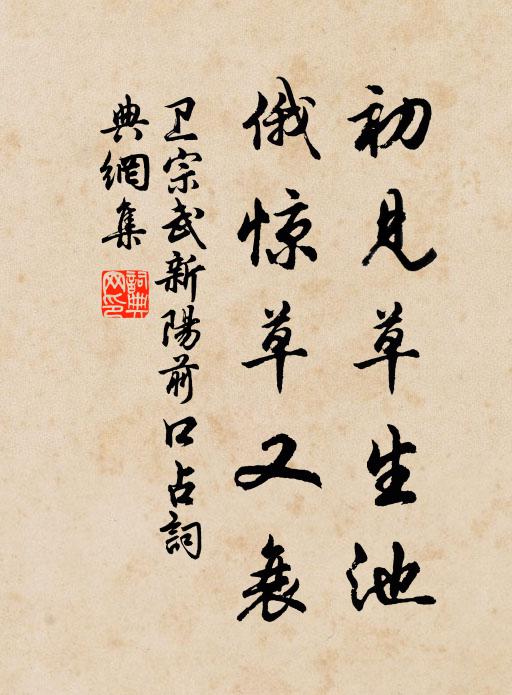 初见草生池
俄惊草又衰
卫宗武新陽前口占詞
典網集
詞典
网印